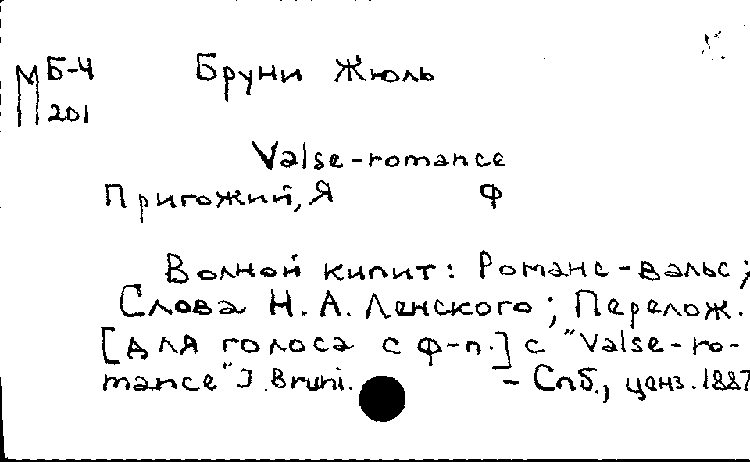 М Б-4 Бруни Жюль
201
Valse-romance
Пригожий, Я Ф
Волной кипит: Романс-вальс;
Слова Н. А. Ленского; Перелож.
[для голоса с ф-п.] с "Valse-ro-
mance" J. Bruni. - Спб., ценз. 1887